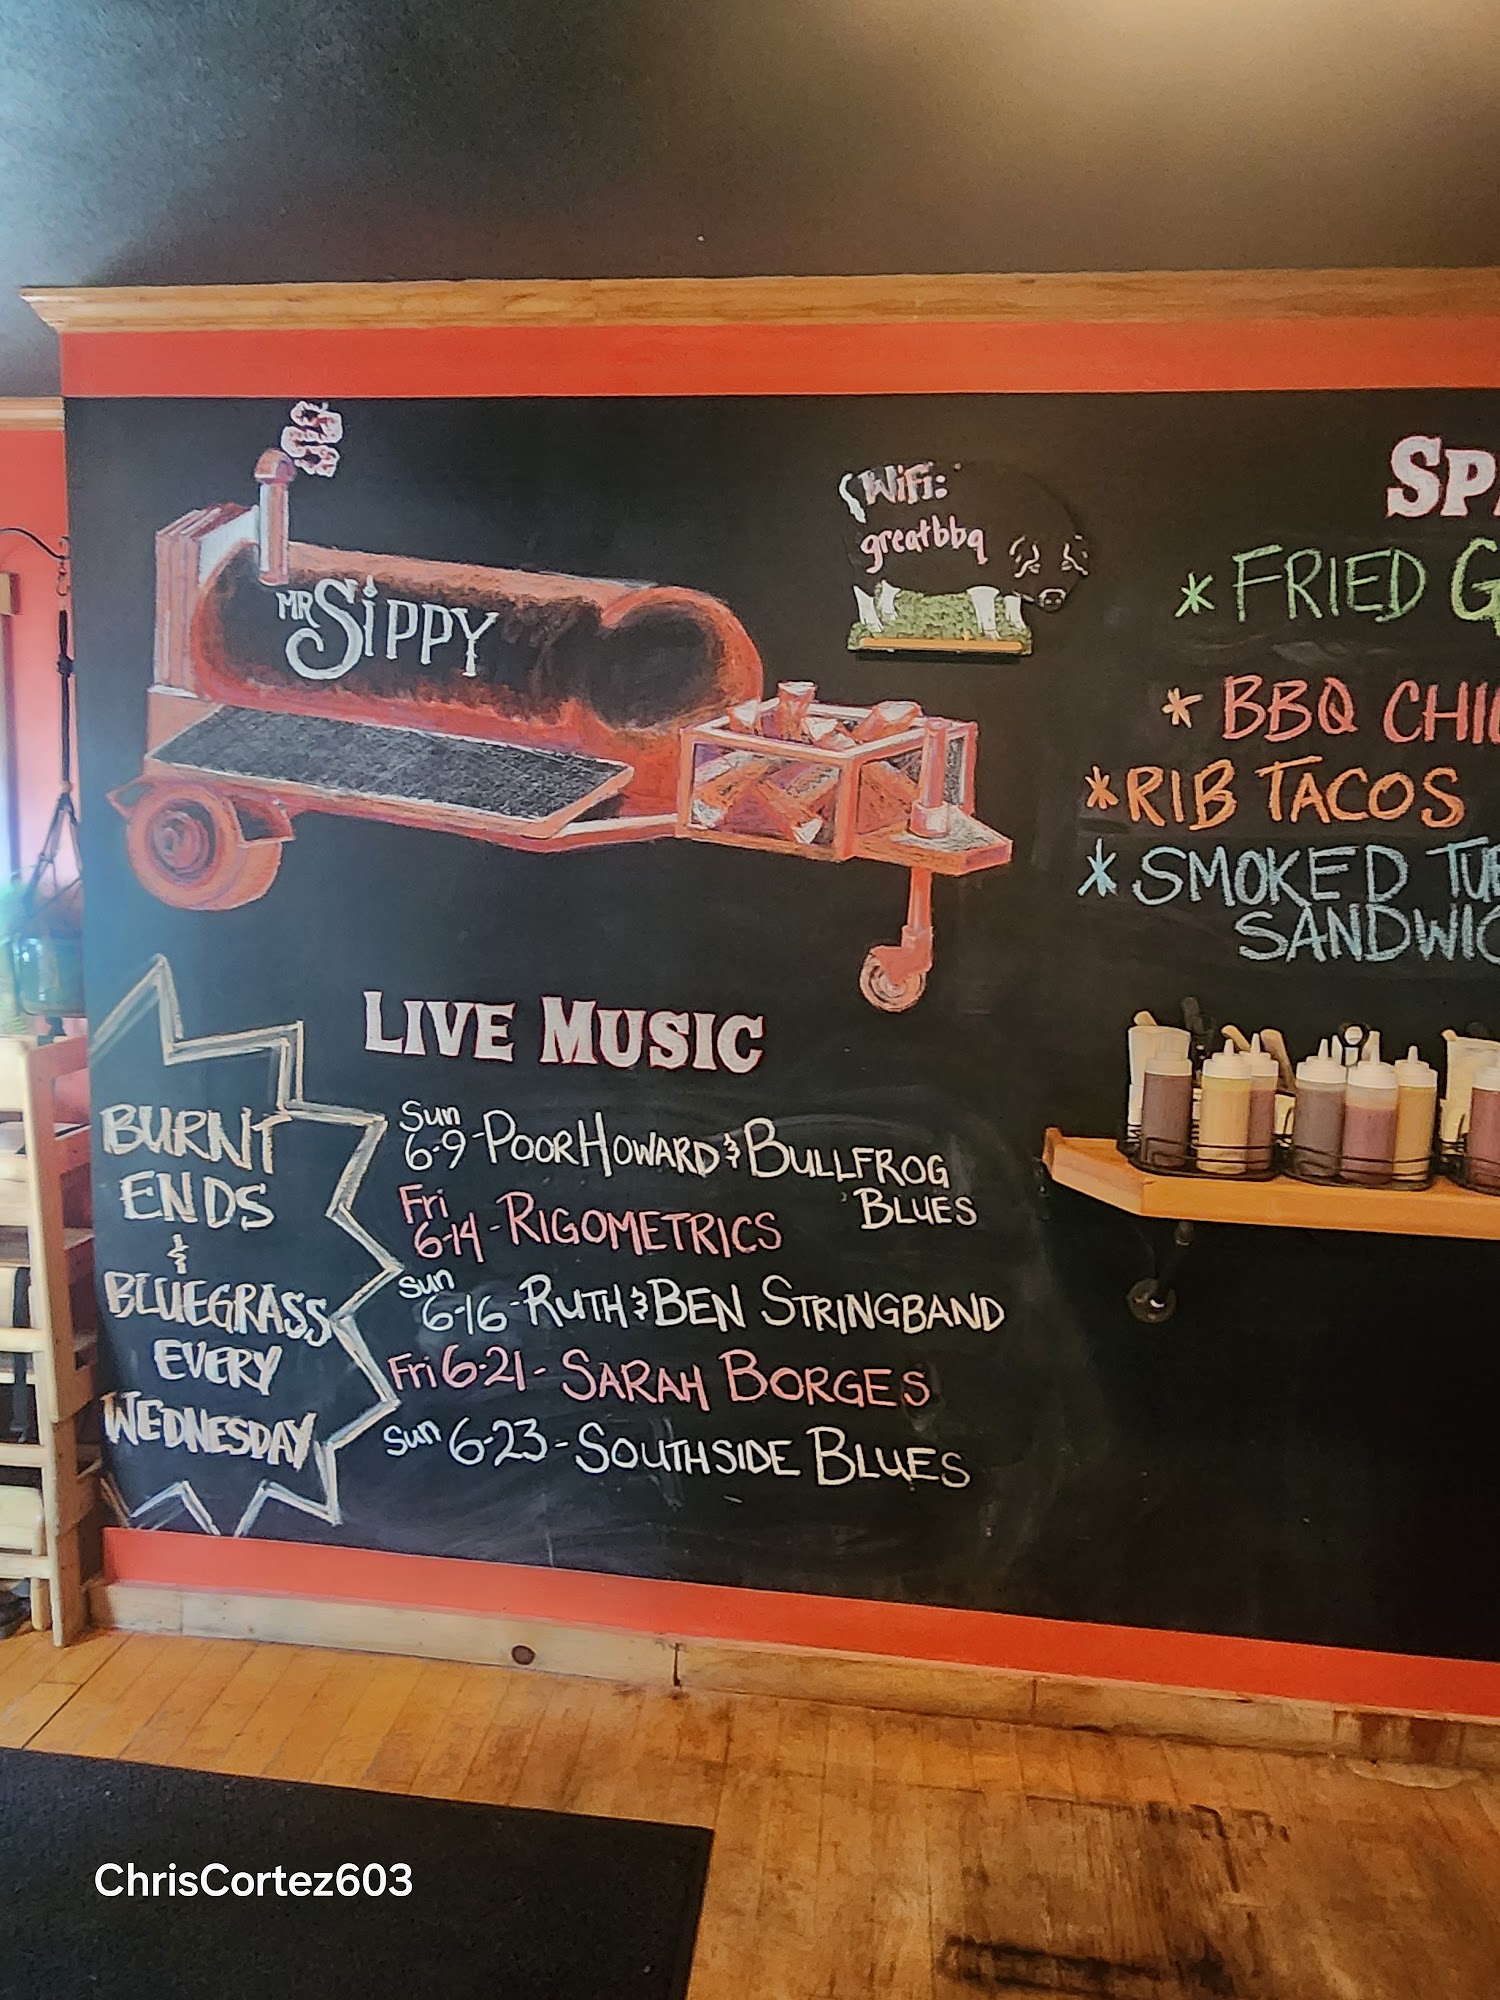 MR SIPPY
WiFi:
greatbbq
* FRIED
* BBQ
* RIB TACOS
* SMOKED
LIVE MUSIC
BURNT
ENDS
&
BLUEGRASS
EVERY
WEDNESDAY
Sun
6-9 - POOR HOWARD & BULLFROG
BLUES
Fri
6-14 - RIGOMETRICS
Sun
6-16 - RUTH & BEN STRINGBAND
Fri 6-21 - SARAH BORGES
Sun 6-23 - SOUTHSIDE BLUES
ChrisCortez603